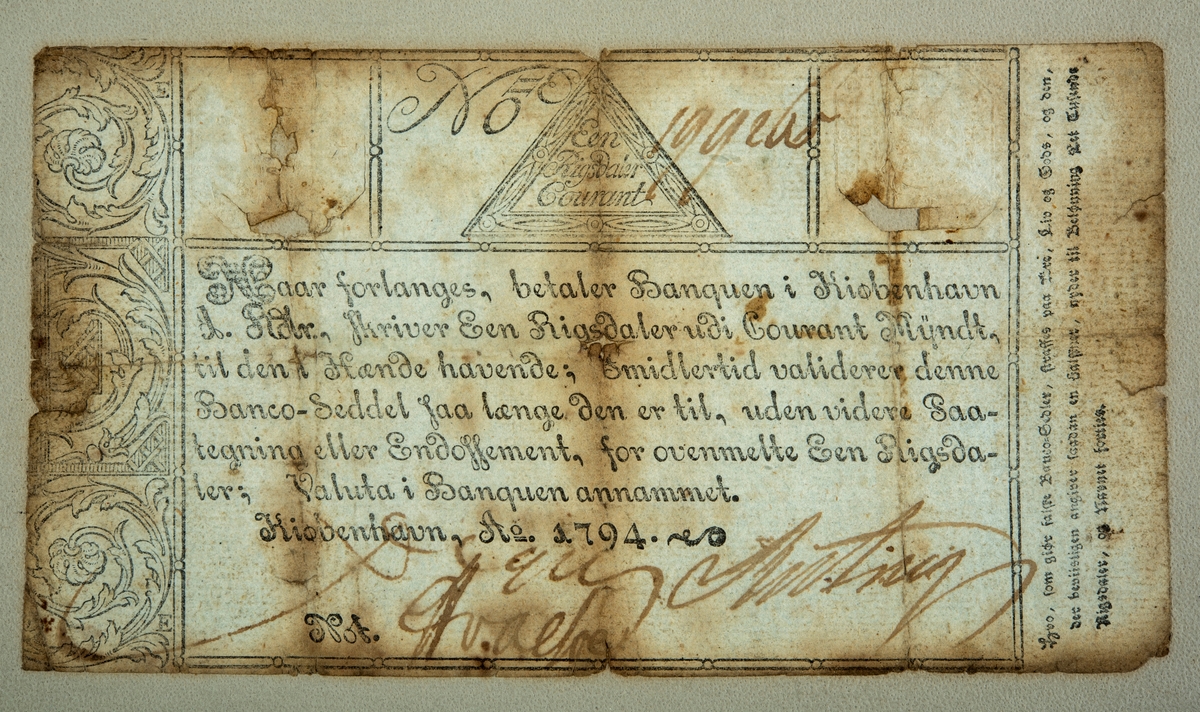 No
Een
Rigsdaler
Courant
Naar forlanges, betaler Banquen i Kiøbenhavn
1. Rdlr., skriver Een Rigsdaler udi Courant Mÿndt,
til den i Hænde havende; Imidlertid validerer denne
Banco-Seddel saa længe den er til, uden videre Paa-
tegning eller Endossement, for ovenmelte Een Rigsda-
ler; Valuta i Banquen annammet.
Kiøbenhavn, Ao. 1794.
Nt.
Hvo, som giør falske Banco-Sedler, straffes paa Ære, Liv og Gods, og den,
der beviisligen angiver saadan en Falskner, nyder til Belønning Eet Tusende
Rigsdaler, og Navnet fortiet.